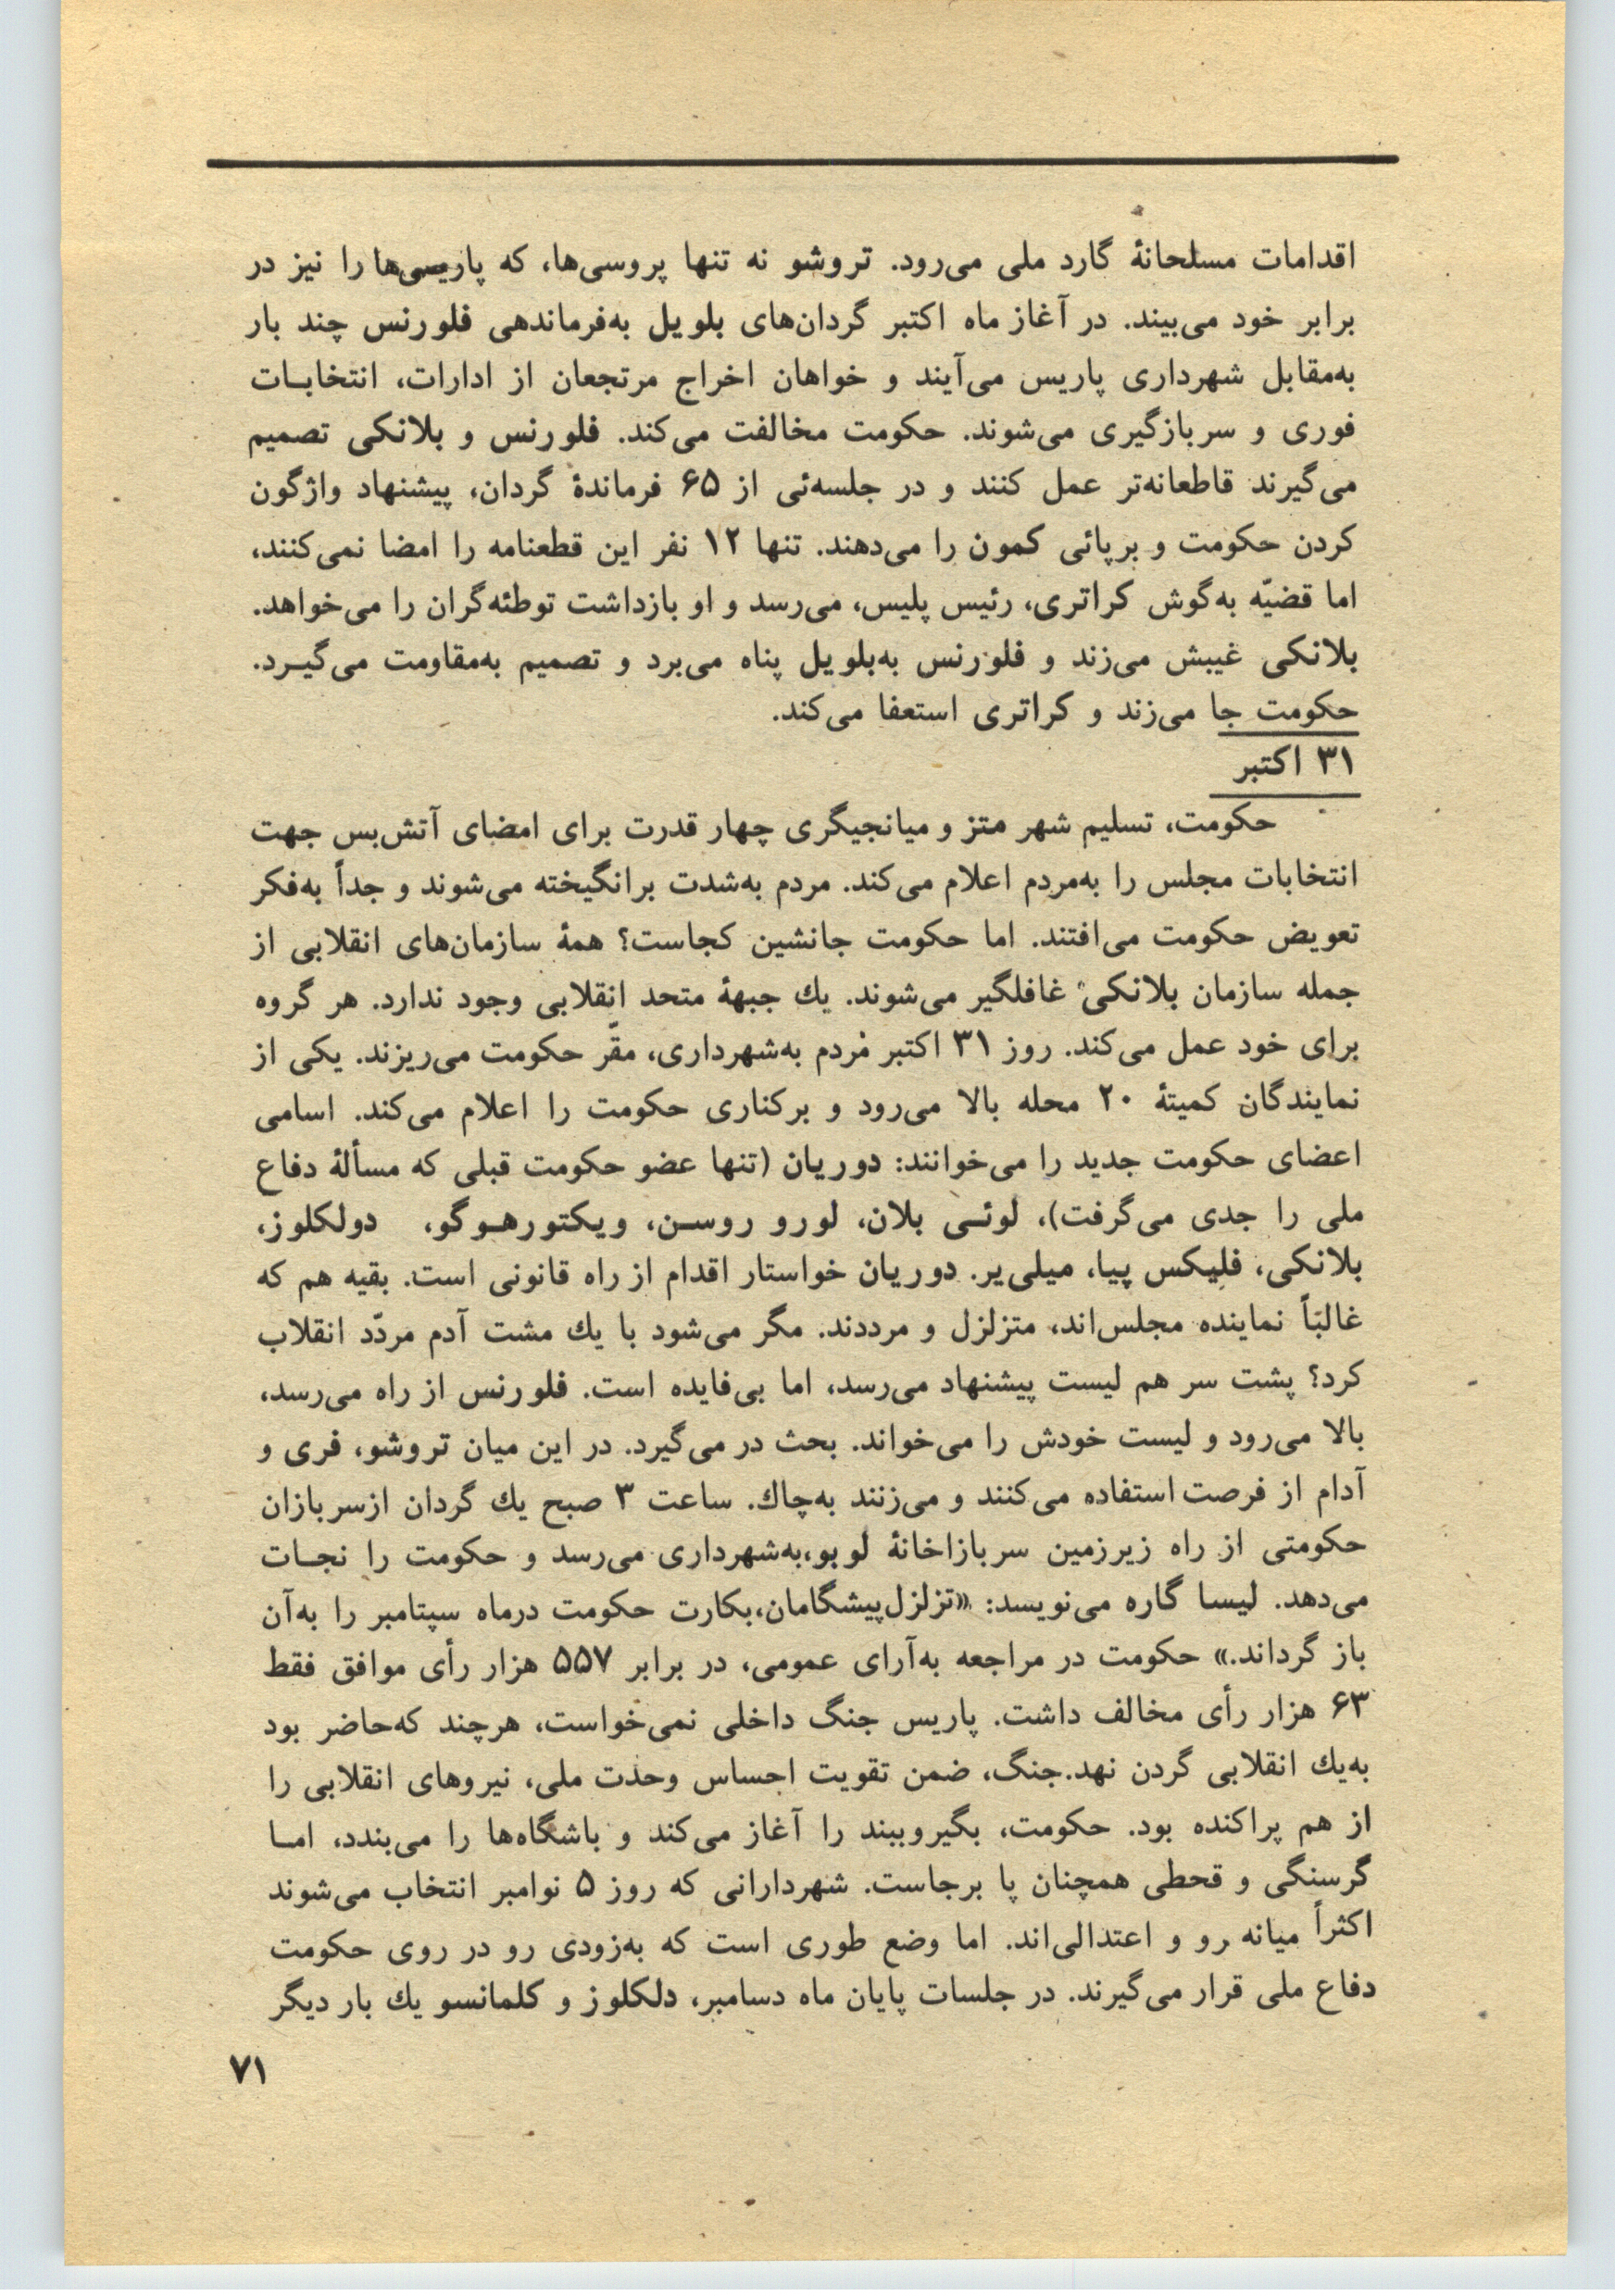 اقدامات مسلحانهٔ گارد ملی می‌رود. تروشو نه تنها پروسی‌ها، که پاریسی‌ها را نیز در
برابر خود می‌بیند. در آغاز ماه اکتبر گردان‌های بلویل به‌فرماندهی فلورنس چند بار
به‌مقابل شهرداری پاریس می‌آیند و خواهان اخراج مرتجعان از ادارات، انتخابـات
فوری و سربازگیری می‌شوند. حکومت مخالفت می‌کند. فلورنس و بلانکی تصمیم
می‌گیرند قاطعانه‌تر عمل کنند و در جلسه‌ئی از ۶۵ فرماندهٔ گردان، پیشنهاد واژگون
کردن حکومت و برپائی کمون را می‌دهند. تنها ۱۲ نفر این قطعنامه را امضا نمی‌کنند،
اما قضیّه به‌گوش کراتری، رئیس پلیس، می‌رسد و او بازداشت توطئه‌گران را می‌خواهد.
بلانکی غیبش می‌زند و فلورنس به‌بلویل پناه می‌برد و تصمیم به‌مقاومت می‌گیـرد.
حکومت جا می‌زند و کراتری استعفا می‌کند.
۳۱ اکتبر
حکومت، تسلیم شهر متز و میانجیگری چهار قدرت برای امضای آتش‌بس جهت
انتخابات مجلس را به‌مردم اعلام می‌کند. مردم به‌شدت برانگیخته می‌شوند و جداً به‌فکر
تعویض حکومت می‌افتند. اما حکومت جانشین کجاست؟ همهٔ سازمان‌های انقلابی از
جمله سازمان بلانکی غافلگیر می‌شوند. یك جبههٔ متحد انقلابی وجود ندارد. هر گروه
برای خود عمل می‌کند. روز ۳۱ اکتبر مردم به‌شهرداری، مقّر حکومت می‌ریزند. یکی از
نمایندگان کمیتهٔ ۲۰ محله بالا می‌رود و برکناری حکومت را اعلام می‌کند. اسامی
اعضای حکومت جدید را می‌خوانند: دوریان (تنها عضو حکومت قبلی که مسألهٔ دفاع
ملی را جدی می‌گرفت)، لوئـی بلان، لورو روسـن، ویکتورهـوگو، دولکلوز،
بلانکی، فلیکس پیا، میلی‌یر. دوریان خواستار اقدام از راه قانونی است. بقیه هم که
غالبًاً نماینده مجلس‌اند، متزلزل و مرددند. مگر می‌شود با یك مشت آدم مردّد انقلاب
کرد؟ پشت سر هم لیست پیشنهاد می‌رسد، اما بی‌فایده است. فلورنس از راه می‌رسد،
بالا می‌رود و لیست خودش را می‌خواند. بحث در می‌گیرد. در این میان تروشو، فری و
آدام از فرصت استفاده می‌کنند و می‌زنند به‌چاك. ساعت ۳ صبح یك گردان ازسربازان
حکومتی از راه زیرزمین سربازاخانهٔ لوبو،به‌شهرداری می‌رسد و حکومت را نجـات
می‌دهد. لیسا گاره می‌نویسد: «تزلزل‌پیشگامان،بکارت حکومت درماه سپتامبر را به‌آن
باز گرداند.» حکومت در مراجعه به‌آرای عمومی، در برابر ۵۵۷ هزار رأی موافق فقط
۶۳ هزار رأی مخالف داشت. پاریس جنگ داخلی نمی‌خواست، هرچند که‌حاضر بود
به‌یك انقلابی گردن نهد.جنگ، ضمن تقویت احساس وحدت ملی، نیروهای انقلابی را
از هم پراکنده بود. حکومت، بگیروببند را آغاز می‌کند و باشگاه‌ها را می‌بندد، امـا
گرسنگی و قحطی همچنان پا برجاست. شهردارانی که روز ۵ نوامبر انتخاب می‌شوند
اکثراً میانه رو و اعتدالی‌اند. اما وضع طوری است که به‌زودی رو در روی حکومت
دفاع ملی قرار می‌گیرند. در جلسات پایان ماه دسامبر، دلکلوز و کلمانسو یك بار دیگر
۷۱